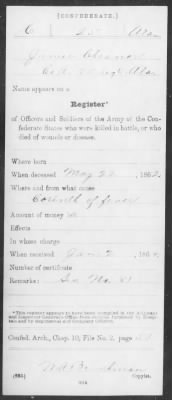 (CONFEDERATE.)
C 25 Ala
James
Co. C, 25 Regt. Ala.
Name appears on a
Register*
of Officers and Soldiers of the Army of the Con-
federate States who were killed in battle, or who
died of wounds or disease.
Where born
When deceased May 22, 1862.
Where and from what cause
Corinth of fever
Amount of money
Effects
In whose charge
When received June 2, 186
Number of certificate
Remarks: No. 81
*This register appears to have been compiled in the Adjutant
and Inspector General's Office from reports furnished by Hospi-
tals and by Regimental and Company Officers.
Confed. Arch., Chap. 10, File No. 2, page
(635)
Copyist.